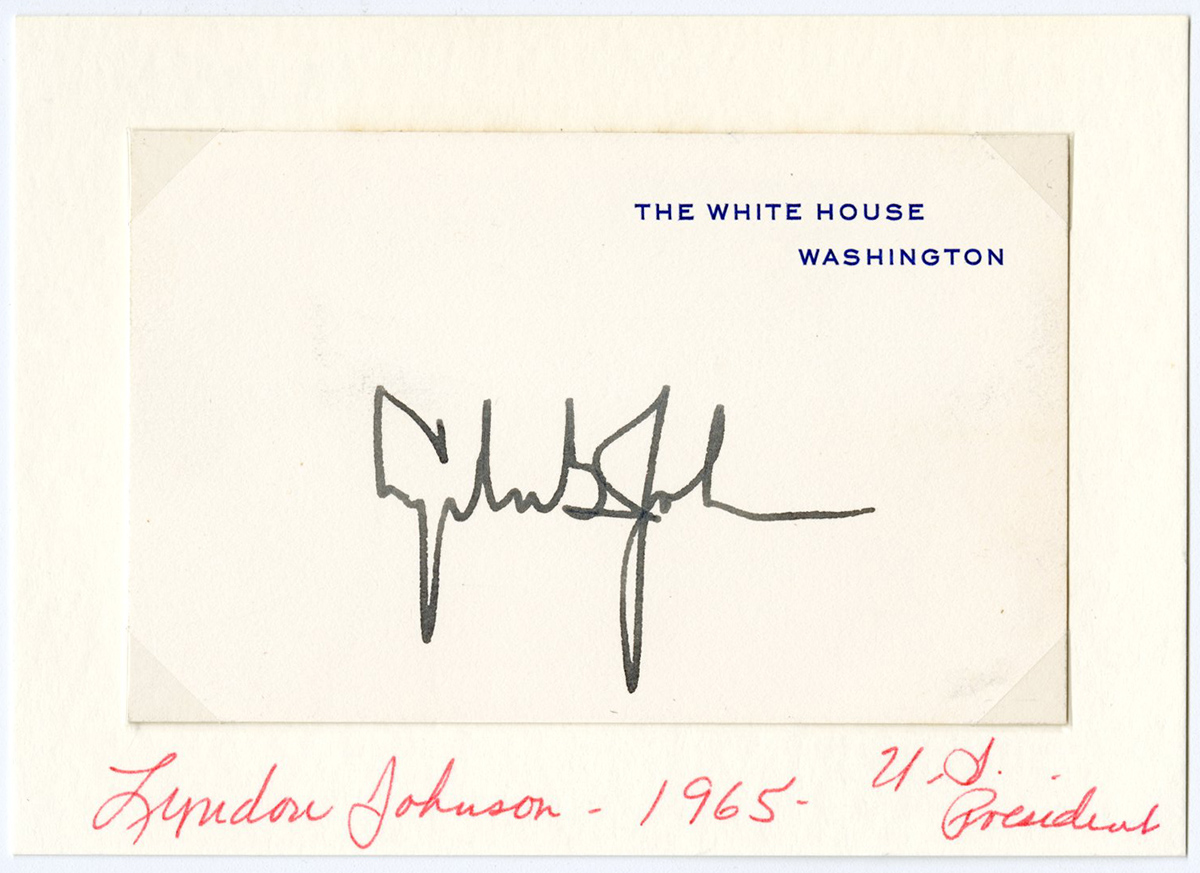 THE WHITE HOUSE
WASHINGTON
Lyndon B Johnson
Lyndon Johnson - 1965 - U.S.
President